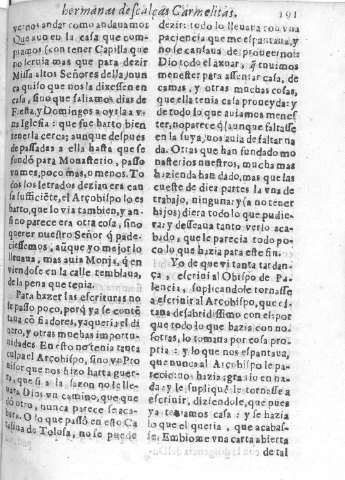 hermanas descalças Carmelitas.
191
yo: no andar como andauamos
Que aun en la casa que com-
piamos (con tener Capilla que
no leruia mas que para dezir
Missa altos Señores della) nun
ca quiso que nos la dixessen en
casa, sino que saliamos dias de
Fiesta, y Domingos a oyrla a v-
na Iglesia: que fue harto bien
tenerla cerca; aunque despues
de passadas a ella hasta que se
fundó para Monasterio, passo
vn mes, poco mas, o menos. To
dos los letrados dezian era cau
sa suficiéte, el Arçobispo lo es
harto, que lo via tambien, y an-
si no parece era otra cosa, sino
querer nuestro Señor q̃ pade-
ciessemos, aũque yo mejor lo
lleuaua, mas auia Monja, q̃ en
viendose en la calle temblaua,
de la pena que tenia.
Para hazer las escrituras no
se passo poco, porq̃ ya se conté
taua cõ fiadores, ya queriã el di
nero, y otras muchas importu-
nidades. En esto no tenia tanta
culpa el Arçobispo, sino vn Pro
uisor que nos hizo harta guer-
ra, que si a la sazon no le lle-
uara Dios vn camino, que que
dó otro, nunca parece se aca-
bara. O lo que passó en esto Ca
talina de Tolosa, no se puede
dezir: todo lo lleuaua con vna
paciencia que me espantaua, y
no se cansaua de proueernos.
Dio todo el axuar, q̃ tuuimos
menester para assentar casa, de
camas, y otras muchas cosas,
que ella tenia casa proueyda: y
de todo lo que auiamos menes
ter, no parece q̃ (aunque faltasse
en la suya) nos auia de faltar na
da. Otras que han fundado mo
nasterios nuestros, mucha mas
hazienda han dado, mas que las
cueste de diez partes la vna de
trabajo, ninguna: y (a no tener
hijos) diera todo lo que pudie-
ra: y desseaua tanto verlo aca-
bado, que le parecia todo po-
co lo que hazia para este fin.
Yo de que vi tanta tardan-
ça, escriui al Obispo de Pa-
lencia, suplicandole tornasse
a escriuir al Arçobispo, que es-
taua desabridissimo con el: por
que todo lo que hazia con no-
sotras, lo tomaua por cosa pro-
pria: y lo que nos espantaua,
que nunca al Arçobispo le pa-
recio nos hazia agrauio en na-
da: y le supliqué le tornasse a
escriuir, diziendole, que pues
ya teniamos casa: y se hazia
lo que el queria, que acabas-
se. Embiome vna carta abierta
de tal